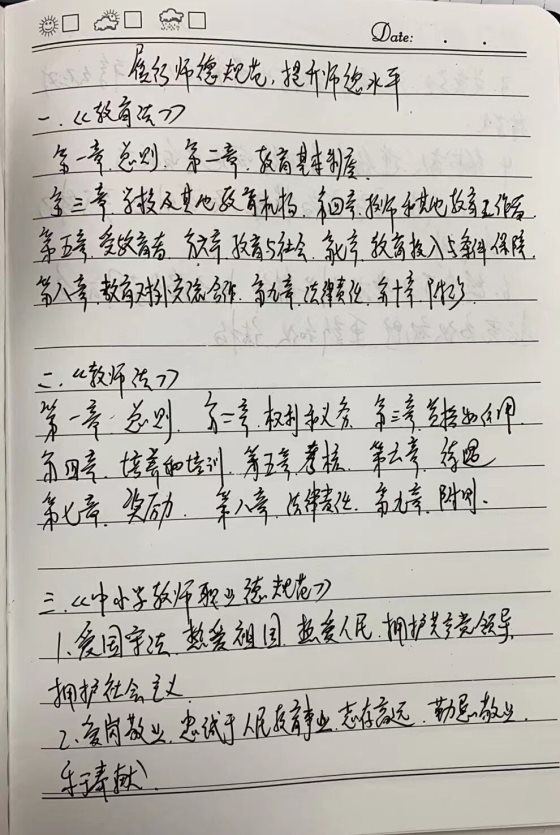 Date:
履行师德规范，提升师德水平
一.《教育法》
第一章，总则，第二章，教育基本制度，
第三章，学校及其他教育机构，第四章，教师和其他教育工作者
第五章，受教育者，第六章，教育与社会，第七章，教育投入与条件保障，
第八章，教育对外交流合作，第九章，法律责任，第十章，附则，
二.《教师法》
第一章，总则，第二章，权利和义务，第三章，资格和任用
第四章，培养和培训，第五章，考核，第六章，待遇
第七章，奖励，第八章，法律责任，第九章，附则.
三.《中小学教师职业德规范》
1、爱国守法，热爱祖国，热爱人民，拥护共产党领导，
拥护社会主义
2、爱岗敬业，忠诚于人民教育事业，志存高远，勤恳敬业，
乐于奉献，